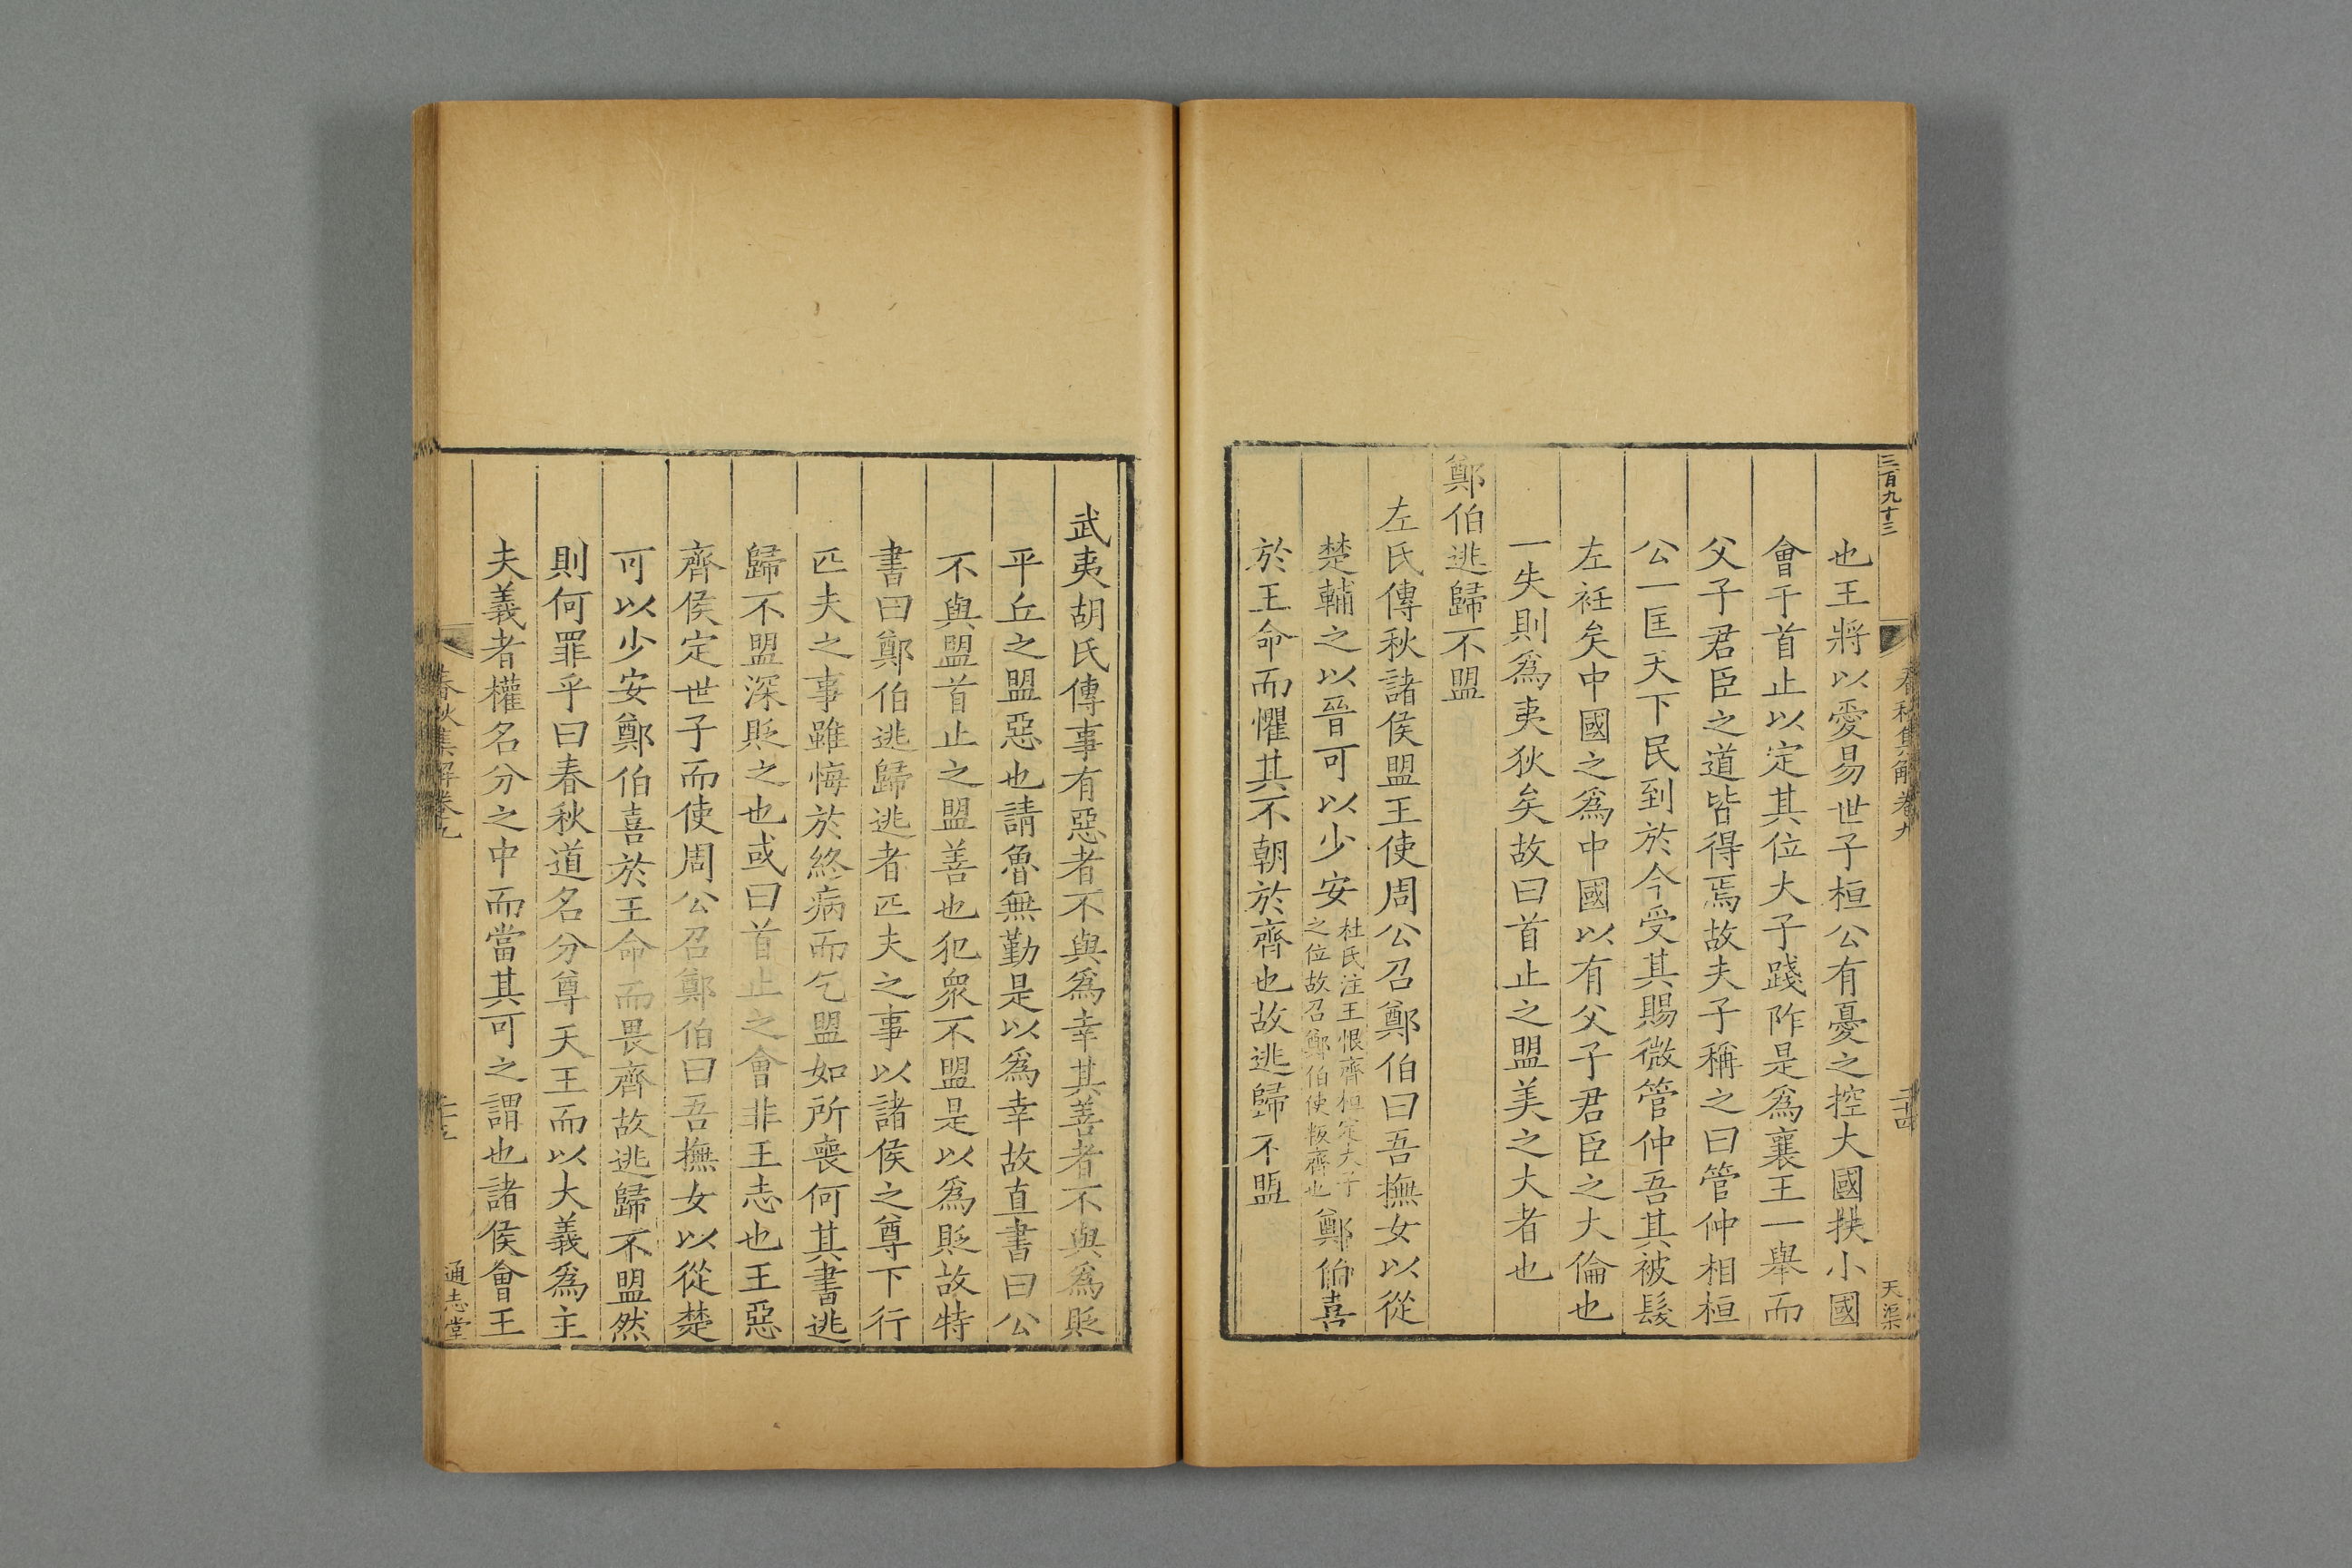 三百九十三
春秋集解卷九
二十四
天渠
也王將以愛易世子桓公有憂之控大國扶小國
會于首止以定其位大子踐阼是爲襄王一舉而
父子君臣之道皆得焉故夫子稱之曰管仲相桓
公一匡天下民到於今受其賜微管仲吾其被髮
左衽矣中國之爲中國以有父子君臣之大倫也
一失則爲夷狄矣故曰首止之盟美之大者也
鄭伯逃歸不盟
左氏傳秋諸侯盟王使周公召鄭伯曰吾撫女以從
楚輔之以晉可以少安
杜氏注王恨齊桓定大子
之位故召鄭伯使叛齊也
鄭伯喜
於王命而懼其不朝於齊也故逃歸不盟
武夷胡氏傳事有惡者不與爲幸其善者不與爲貶
平丘之盟惡也請魯無勤是以爲幸故直書曰公
不與盟首止之盟善也犯眾不盟是以爲貶故特
書曰鄭伯逃歸逃者匹夫之事以諸侯之尊下行
匹夫之事雖悔於終病而乞盟如所喪何其書逃
歸不盟深貶之也或曰首止之會非王志也王惡
齊侯定世子而使周公召鄭伯曰吾撫女以從楚
可以少安鄭伯喜於王命而畏齊故逃歸不盟然
則何罪乎曰春秋道名分尊天王而以大義爲主
夫義者權名分之中而當其可之謂也諸侯會王
春秋集解卷九
二十五
通志堂